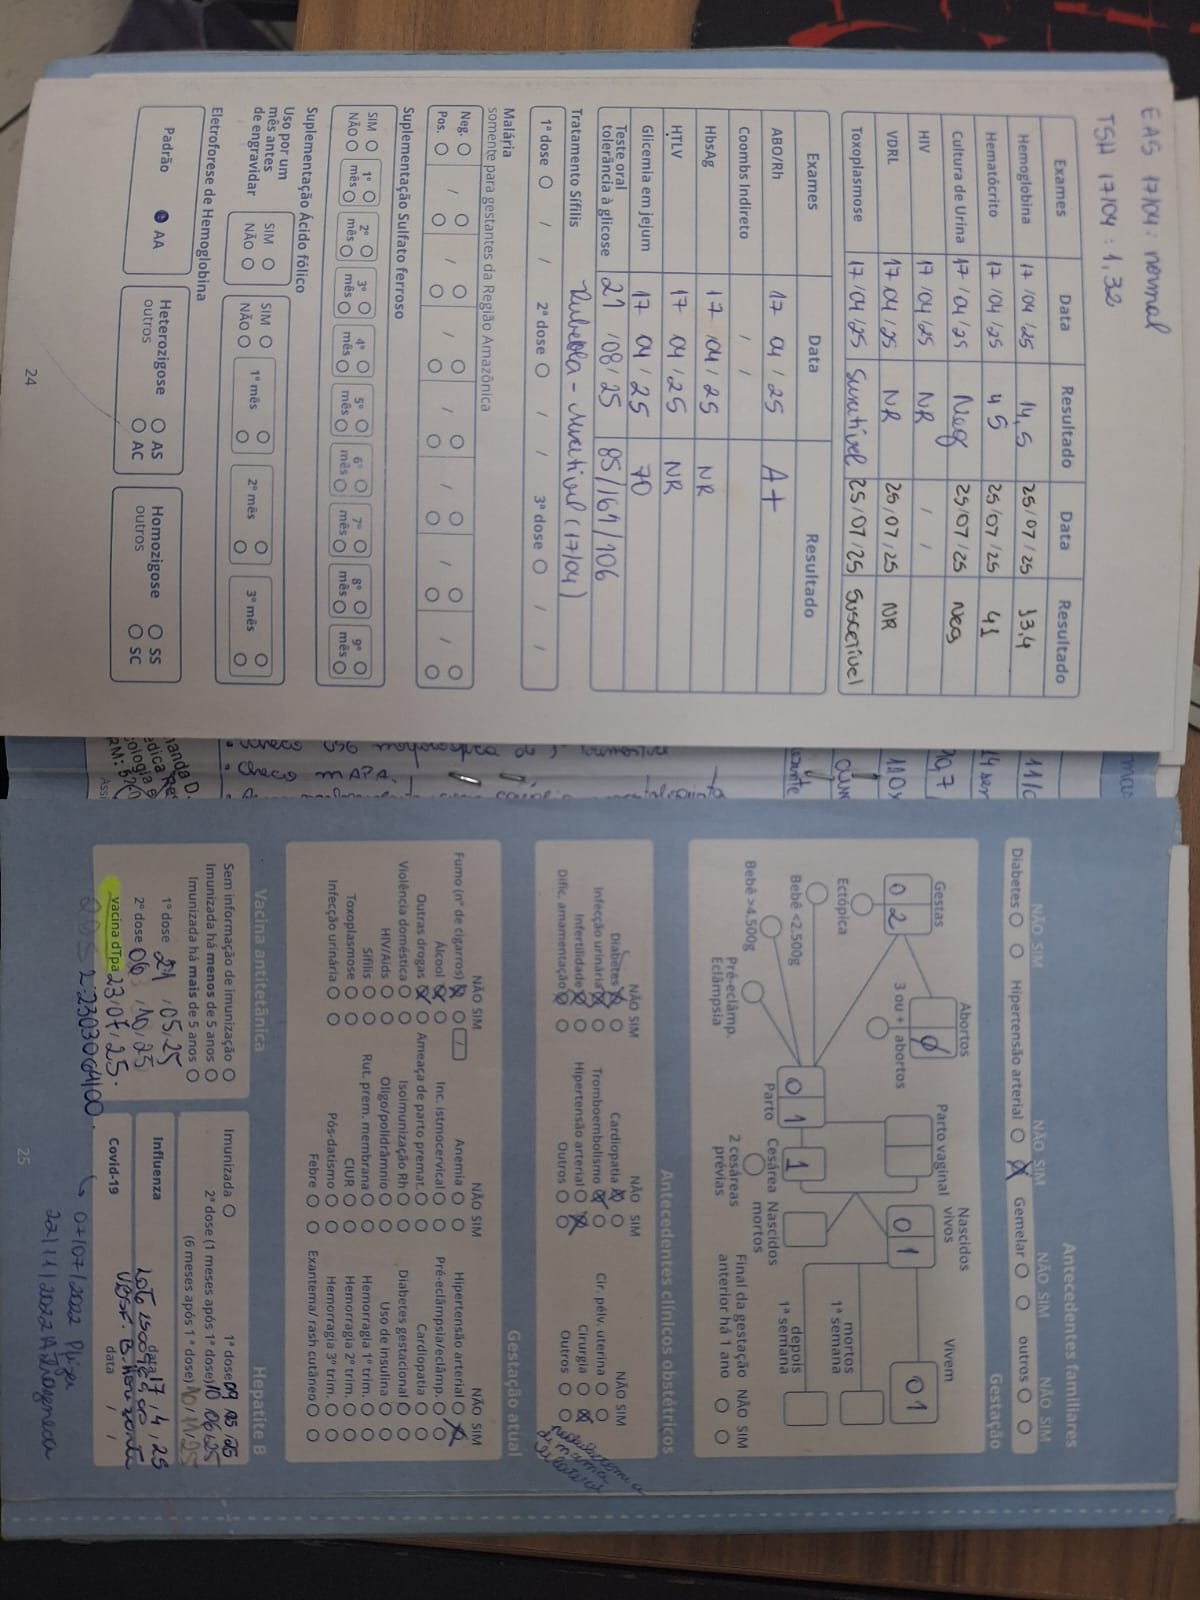 EAS 17/04: normal
TSH 17/04: 1,32
Exames Data Resultado Data Resultado
Hemoglobina 17/04/25 14,5 25/07/25 13,4
Hematócrito 17/04/25 45 25/07/25 41
Cultura de Urina 17/04/25 Neg 25/07/25 Neg
HIV 17/04/25 NR / /
VDRL 17/04/25 NR 25/07/25 NR
Toxoplasmose 17/04/25 Suscetível 25/07/25 Suscetível
Exames Data Resultado
ABO/Rh 17/04/25 A+
Coombs Indireto / /
HbsAg 17/04/25 NR
HTLV 17/04/25 NR
Glicemia em jejum 17/04/25 70
Teste oral
tolerância à glicose 21/08/25 85/161/106
Tratamento Sífilis Rubéola - Suscetível (17/04)
1ª dose / / 2ª dose / / 3ª dose / /
Malária
somente para gestantes da Região Amazônica
Neg. / / / / / /
Pos.
Suplementação Sulfato ferroso
SIM 1º 2º 3º 4º 5º 6º 7º 8º 9º
NÃO mês mês mês mês mês mês mês mês mês
Suplementação Ácido fólico
Uso por um
mês antes
de engravidar
SIM
NÃO
SIM
NÃO
1º mês 2º mês 3º mês
Eletroforese de Hemoglobina
Padrão AA
Heterozigose
outros
AS
AC
Homozigose
outros
SS
SC
24
• checo MAPA.
Antecedentes familiares
NÃO SIM NÃO SIM NÃO SIM NÃO SIM
Diabetes Hipertensão arterial Gemelar outros
Gestação
Gestas Abortos Parto vaginal Nascidos vivos Vivem
0 2 Ø 0 1 01
Ectópica 3 ou + abortos
Bebê <2.500g
Bebê >4.500g
Pré-eclâmp.
Eclâmpsia
0 1 1
Parto Cesárea Nascidos
mortos
2 cesáreas
prévias
mortos
1ª semana
depois
1ª semana
Final da gestação
anterior há 1 ano
NÃO SIM
Antecedentes clínicos obstétricos
NÃO SIM NÃO SIM NÃO SIM
Diabetes Cardiopatia Cir. pélv. uterina
Infecção urinária Tromboembolismo Cirurgia
Infertilidade Hipertensão arterial Outros
Dific. amamentação Outros
mama
Gestação atual
NÃO SIM NÃO SIM NÃO SIM
Fumo (nº de cigarros) Anemia Hipertensão arterial
Álcool Inc. istmocervical Pré-eclâmpsia/eclâmp.
Outras drogas Ameaça de parto premat. Cardiopatia
Violência doméstica Isoimunização Rh Diabetes gestacional
HIV/Aids Oligo/polidrâmnio Uso de insulina
Sífilis Rut. prem. membrana Hemorragia 1º trim.
Toxoplasmose CIUR Hemorragia 2º trim.
Infecção urinária Pós-datismo Hemorragia 3º trim.
Febre Exantema/rash cutâneo
Vacina antitetânica
Sem informação de imunização
Imunizada há menos de 5 anos
Imunizada há mais de 5 anos
1ª dose 21/05/25
2ª dose 06/10/25
vacina dTpa 23/07/25.
2:230306400.
Hepatite B
Imunizada 1ª dose 09/05/25
2ª dose (1 meses após 1ª dose) 10/06/25
(6 meses após 1ª dose) 10/11/25
Influenza data 17/4/25
Covid-19 data / /
07/07/2022 Pfizer
22/11/2022
25